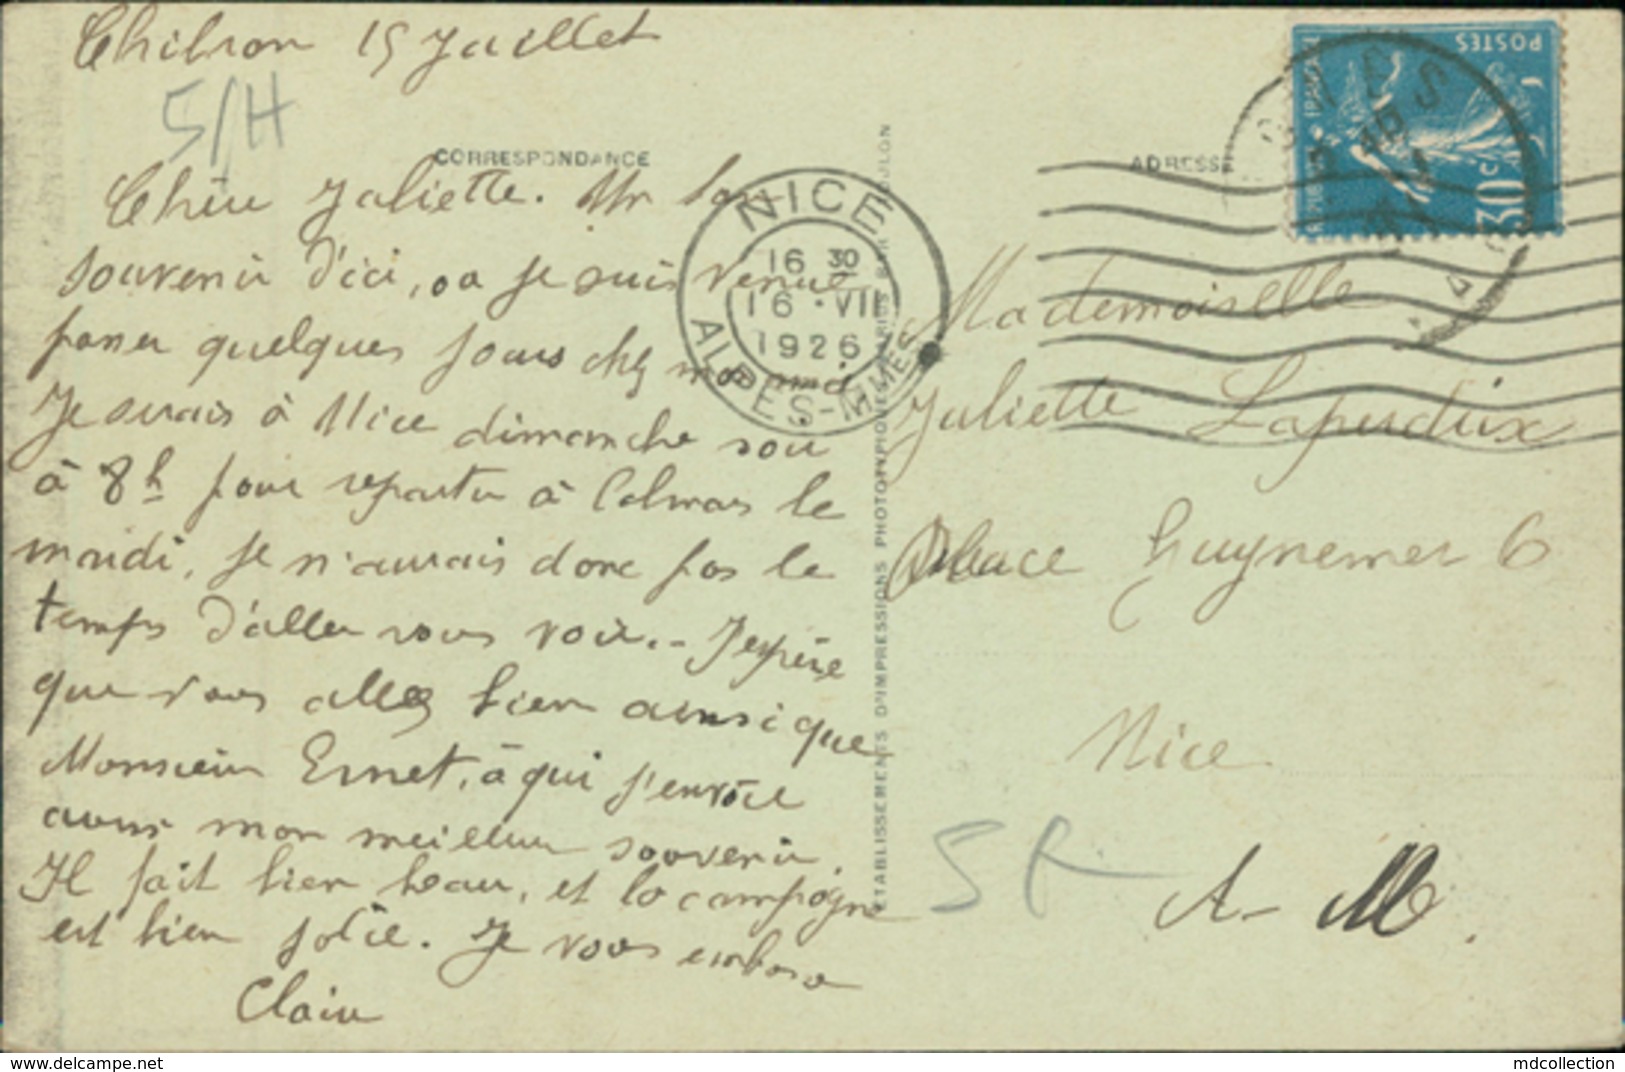 Thilron 15 Juillet
5/H
CORRESPONDANCE
Chère Juliette. Un bon
souvenir d'ici, où je suis venue
passer quelques jours chez ma amie
Je serais à Nice dimanche soir
à 8h pour repartir à Colmars le
mardi, je n'aurais donc pas le
temps d'aller vous voir. - J'espère
que vous allez bien ainsi que
Monsieur Ernet, à qui j'envoie
aussi mon meilleur souvenir.
Il fait bien beau, et la campagne
est bien jolie. Je vous embrasse
Claire
NICE
16 30
16 · VII
1926
ALPES-MMES
ETABLISSEMENTS D'IMPRESSIONS PHOTOTYPIQUES MARIUS BAR TOULON
ADRESSE
POSTES
30c
Mademoiselle
Juliette Laperdrix
Place Guynemer 6
Nice
A-M.
mdcollection
https://www.delcampe.net